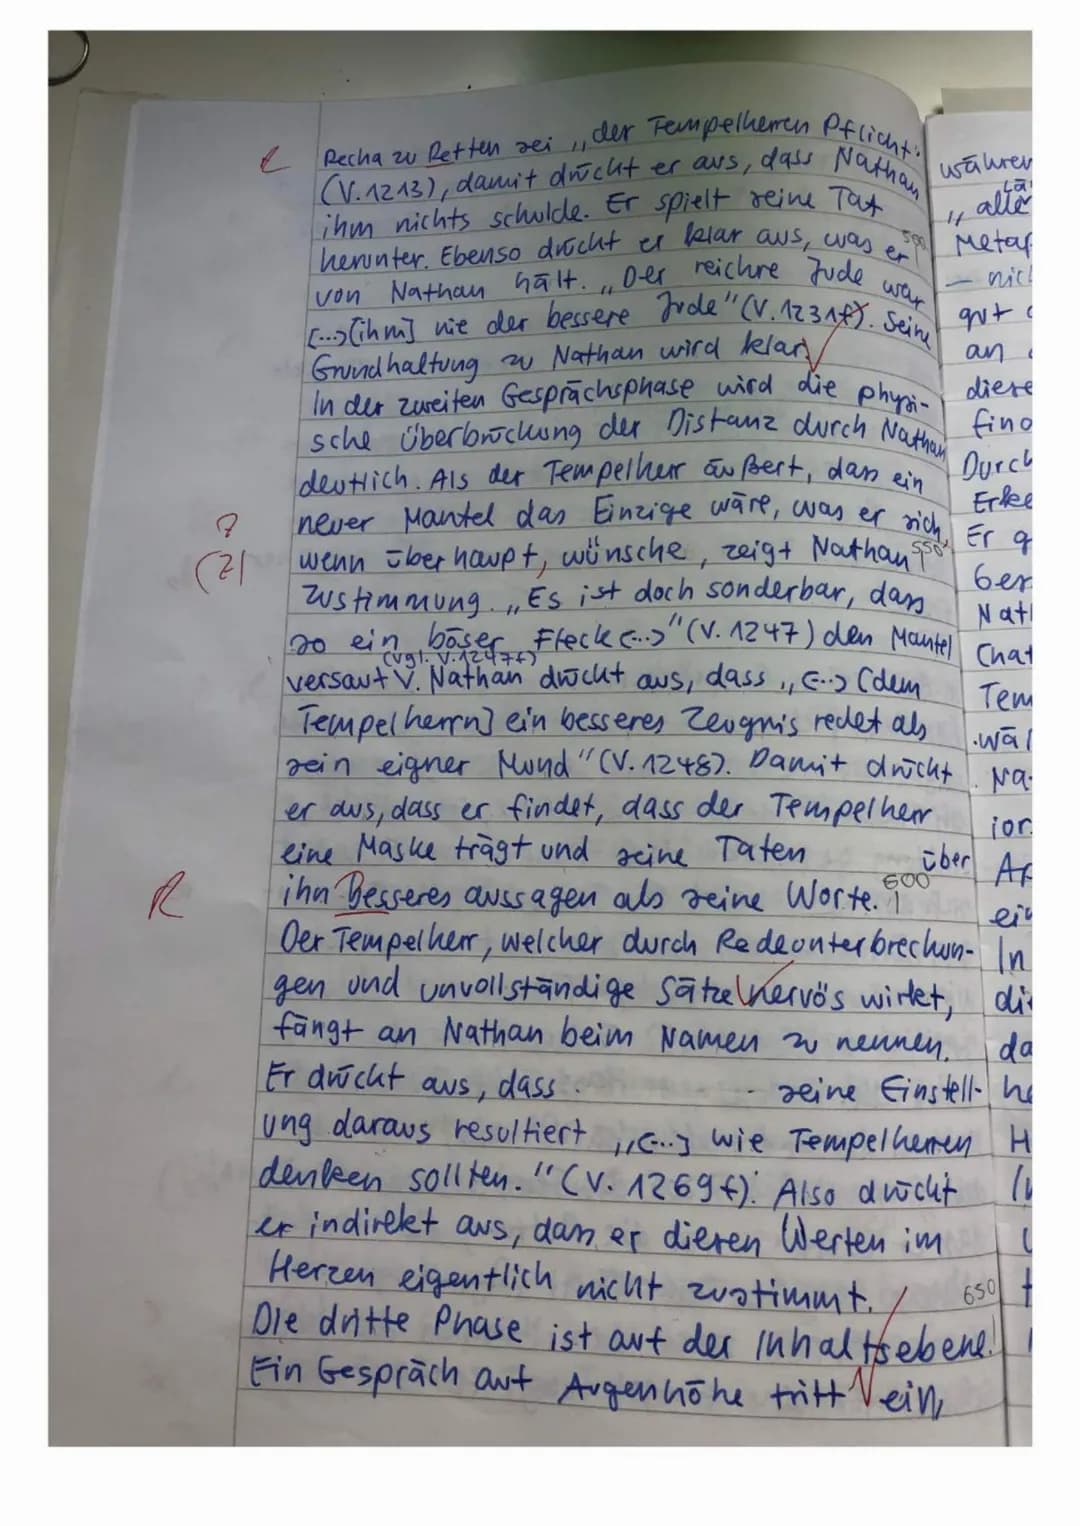 Recha zu Retten sei „der Tempelherren Pflicht"
(V.1213), damit drückt er aus, dass Nathan
ihm nichts schulde. Er spielt seine Tat
herunter. Ebenso drückt er klar aus, was er
500
von Nathan hält. „Der reichre Jude war
[...] [ihm] nie der bessere Jude" (V.1231f). Seine
Grundhaltung zu Nathan wird klar.
In der zweiten Gesprächsphase wird die physi-
sche Überbrückung der Distanz durch Nathan
deutlich. Als der Tempelherr äußert, dass ein
neuer Mantel das Einzige wäre, was er sich,
wenn überhaupt, wünsche, zeigt Nathan
550
Zustimmung. „Es ist doch sonderbar, dass
so ein böser Fleck [...]" (V. 1247) den Mantel
(vgl. V.1247f)
versaut V. Nathan drückt aus, dass „[...] [dem
Tempelherrn] ein besseres Zeugnis redet als
sein eigner Mund" (V. 1248). Damit drückt
er aus, dass er findet, dass der Tempelherr
eine Maske trägt und seine Taten über
ihn Besseres aussagen als seine Worte.
600
Der Tempelherr, welcher durch Redeunterbrechun-
gen und unvollständige Sätze nervös wirkt,
fängt an Nathan beim Namen zu nennen.
Er drückt aus, dass seine Einstell-
ung daraus resultiert „[...] wie Tempelherren
denken sollten." (V. 1269f). Also drückt
er indirekt aus, dass er diesen Werten im
Herzen eigentlich nicht zustimmt.
650
Die dritte Phase ist auf der Inhaltsebene.
Ein Gespräch auf Augenhöhe tritt ein,
R
?
(Z)
währen
„alle
Metap
– nic
gut
an
diese
find
Durch
Erke
Er g
Nath
Tem
wä
Na
ein
In
di
da
he
H